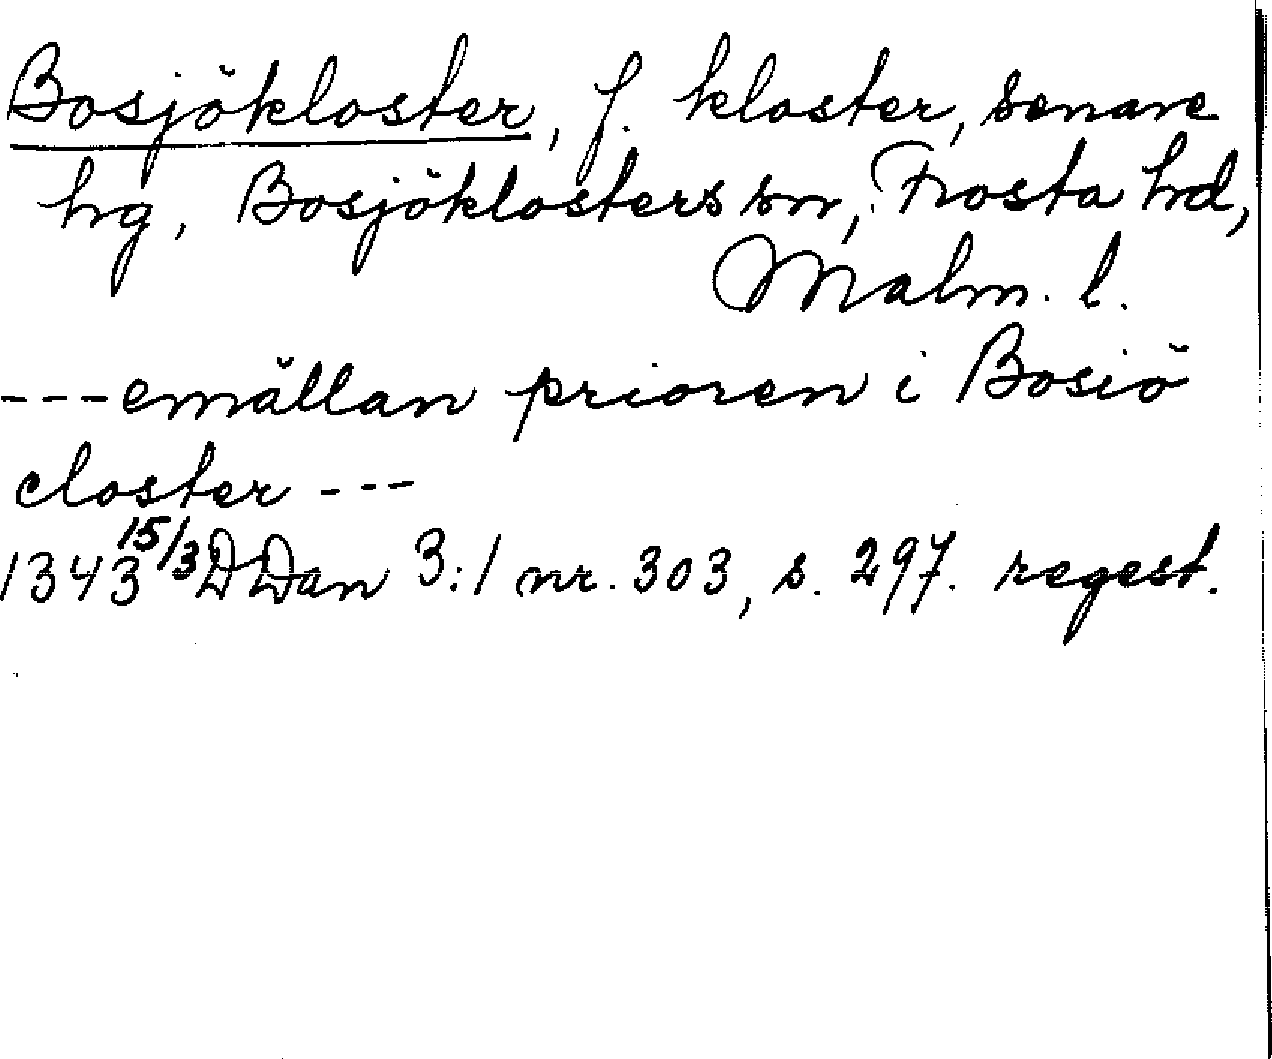 Bosjökloster, f. kloster, senare
hg, Bosjöklosters sn, Frosta hd,
Malm. l.
---emällan prioren i Bosiö
closter ---
1343 15/3 DDan 3:1 nr. 303, s. 297. regest.